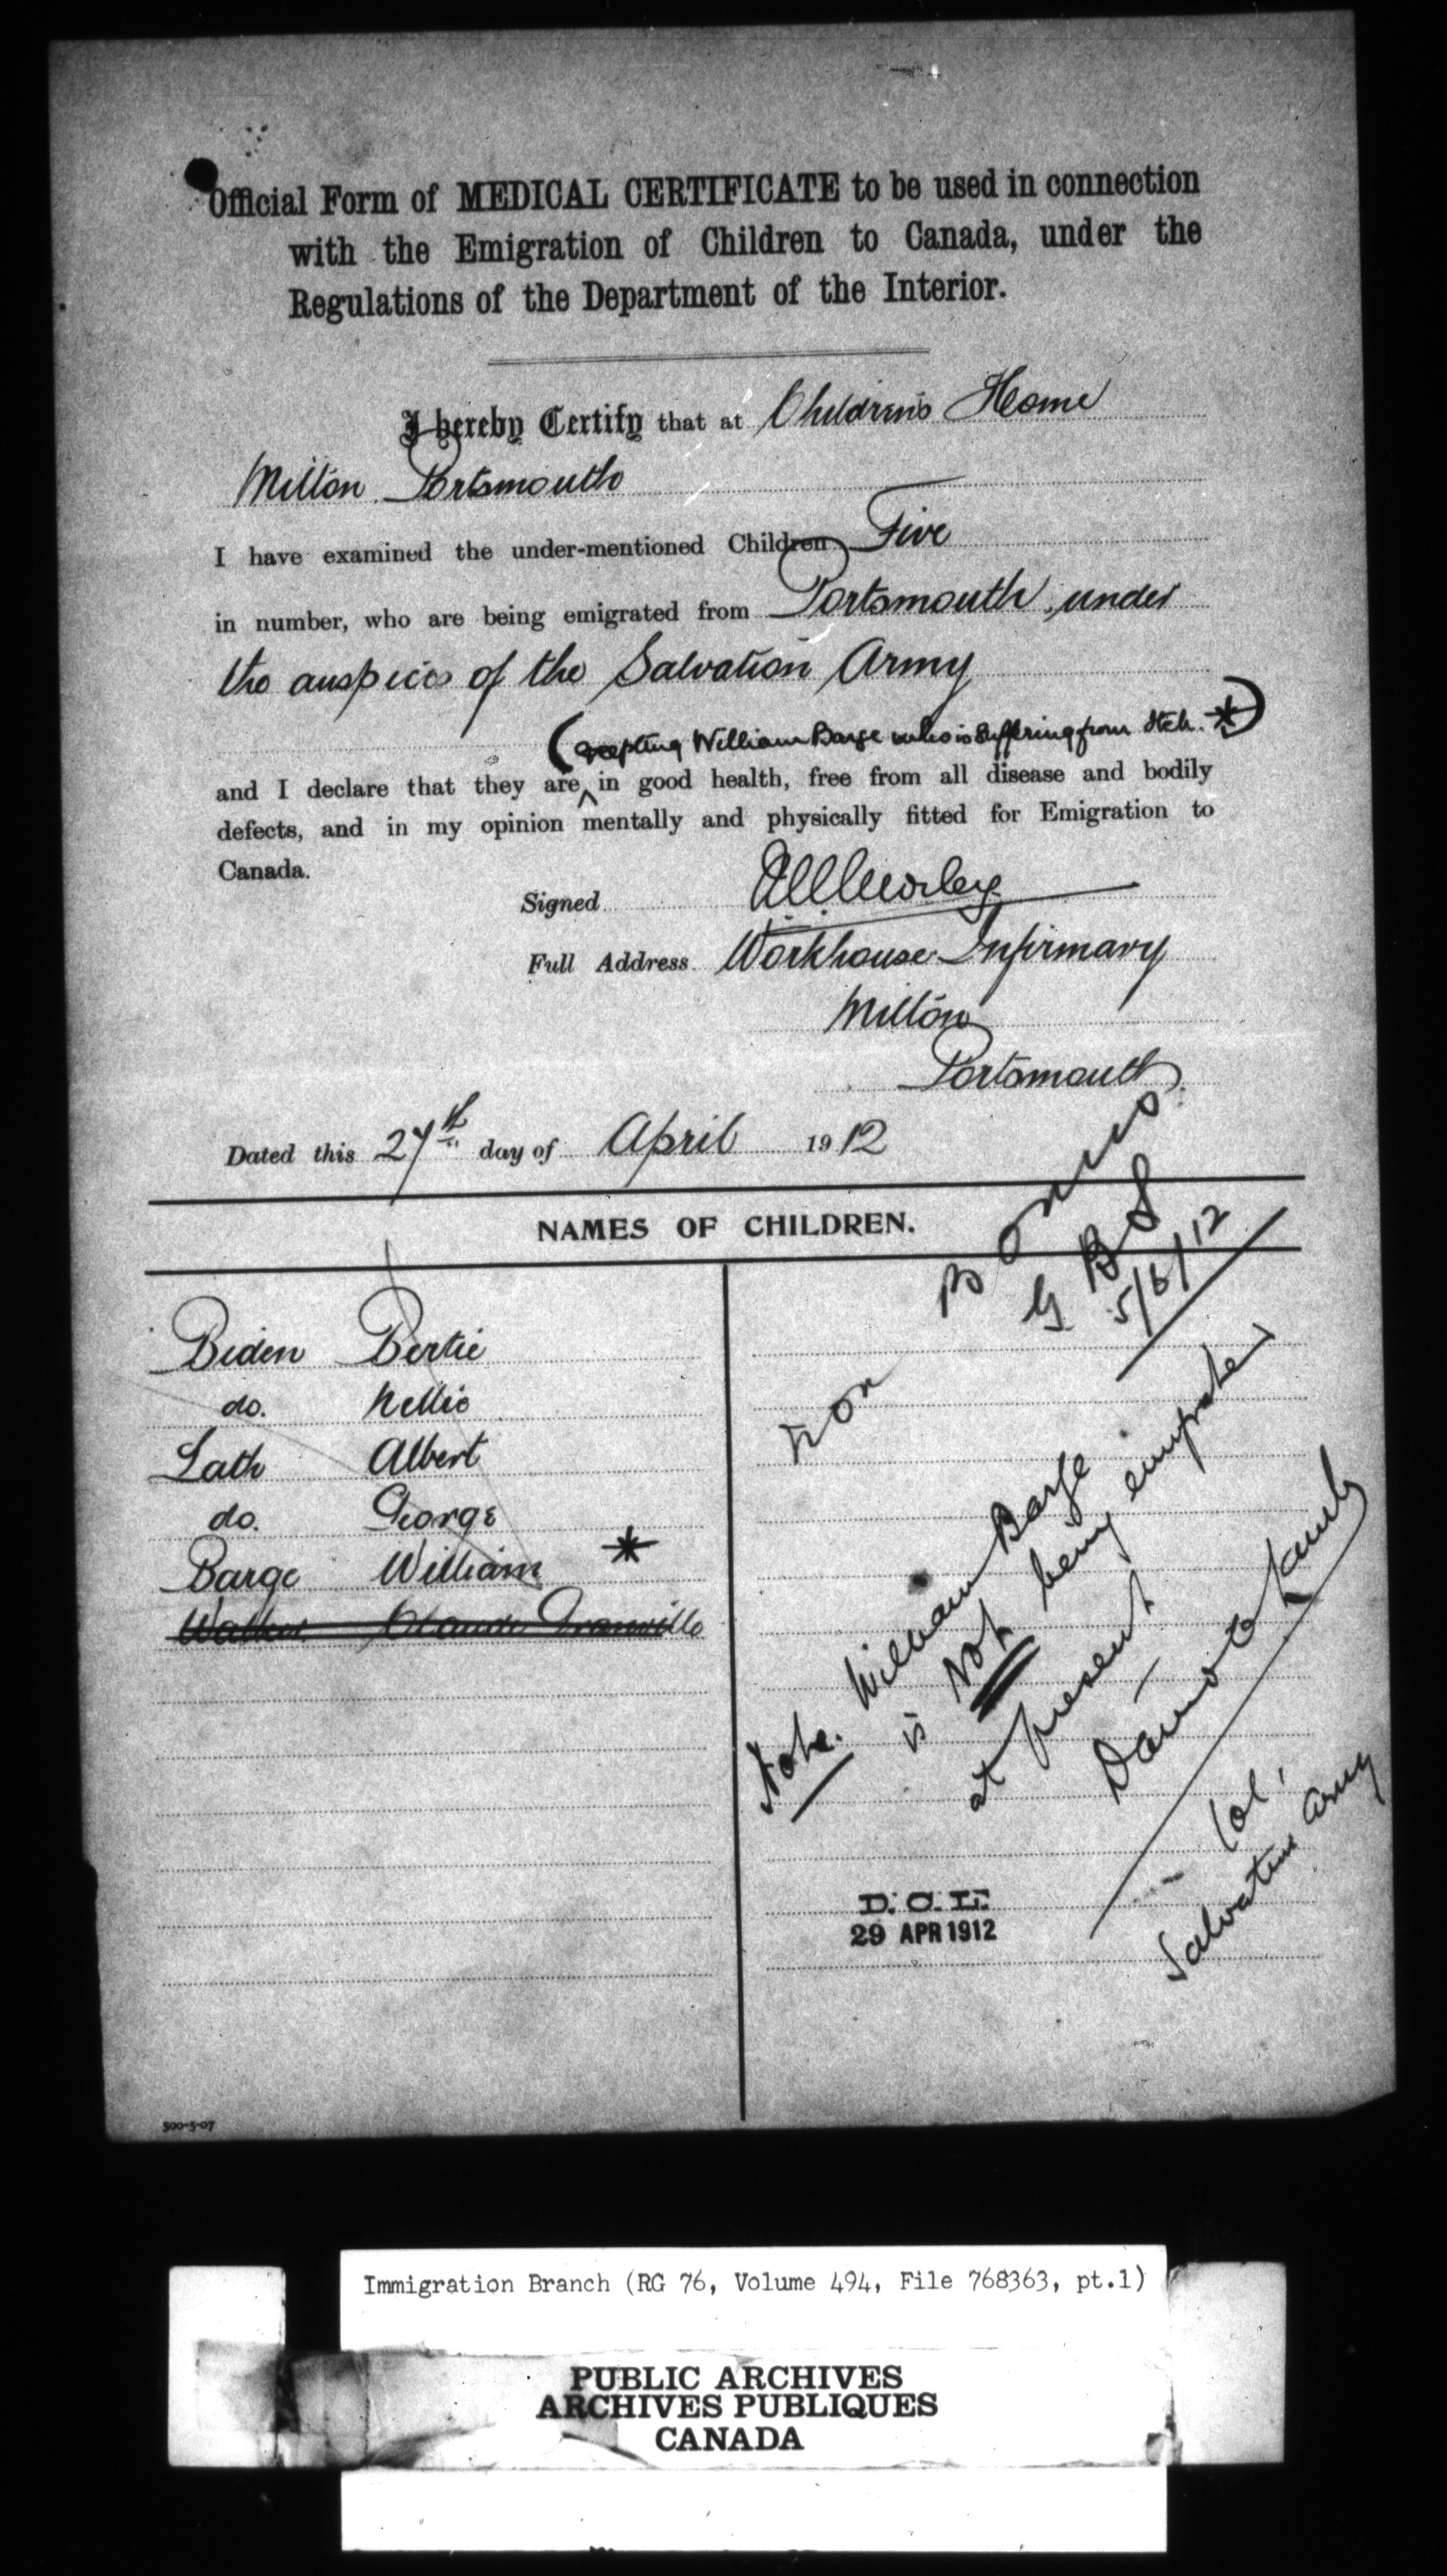 Official Form of MEDICAL CERTIFICATE to be used in connection
with the Emigration of Children to Canada, under the
Regulations of the Department of the Interior.
I hereby Certify that at Children's Home
Milton Portsmouth
I have examined the under-mentioned Children Five
in number, who are being emigrated from Portsmouth, under
the auspices of the Salvation Army
(excepting William Barge who is suffering from Itch. *)
and I declare that they are in good health, free from all disease and bodily
defects, and in my opinion mentally and physically fitted for Emigration to
Canada.
Signed
Full Address Workhouse Infirmary
Milton
Portsmouth
Dated this 27th day of April 1912
NAMES OF CHILDREN.
Biden Bertie
do. Nellie
Lath Albert
do. George
Barge William *
Walker Claude Granville
Non Bonus
G B S
5/6/12
Note. William Barge
is Not being emigrated
at present
David C Lamb
Col.
Salvation Army
D.C.E.
29 APR 1912
500-5-07
Immigration Branch (RG 76, Volume 494, File 768363, pt.1)
PUBLIC ARCHIVES
ARCHIVES PUBLIQUES
CANADA